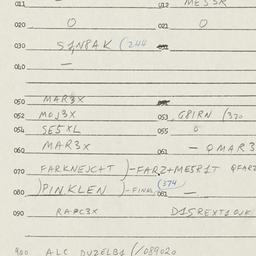 011 — 012 MESSR
020 O 021 O
030 S1NPAK (244
040 —
050 MAR3X
052 MOJ3X 053 GPIRN (370
054 SE5XL 055 O
060 MAR3X 061 — QMAR3
070 FARKNEJC+T )-FARZ+MESP1T QFARZ
080 )PINKLEN )-FINAL (374 081 —
090 RAPC3X D15REXT10JK
900 ALC DUZELB1 (/089020